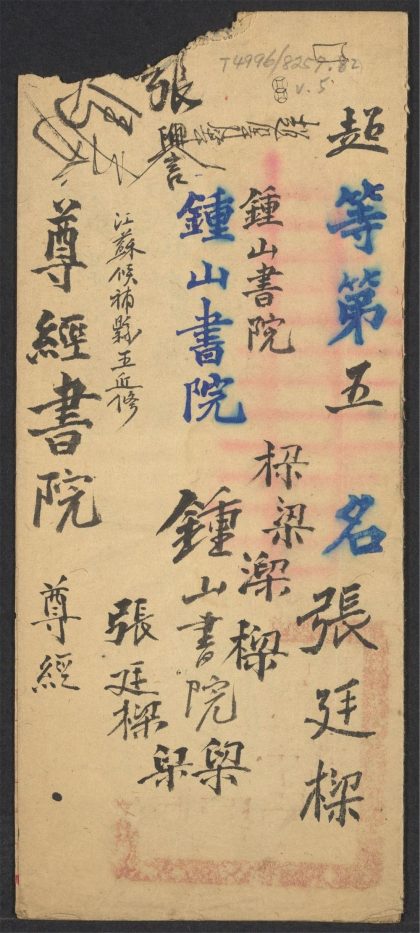 超等第五名張廷樑
鍾山書院
樑梁樑樑
鍾山書院
鍾山書院
梁梁
張
張廷樑
江蘇候補縣五丘修
尊經書院
尊經
T4996/8257.82
v. 5